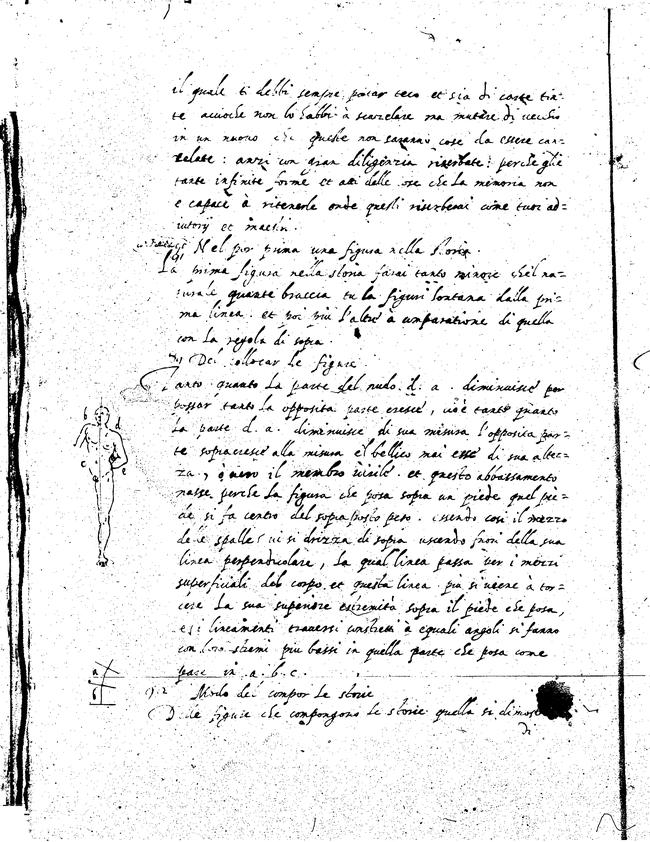 il quale ti debbi sempre portar teco et sia di carte tin=
te accioche non lo habbi à scancelare ma mutare di vecchio
in un nuovo che queste non saranno cose da essere can=
celate: anzi con gran diligenzia riserbate: perche gl'è
tante infinite forme et atti delle cose che La memoria non
e capace à ritenerle onde questi riserberai come tuoi ad=
iutory et maestri.
Nel por prima una figura nella storia.
La prima figura nella storia farai tanto minore chel na=
turale quante braccia tu la figuri lontana dalla pri=
ma linea. et poi più l'altre à comparatione di quella
con La regola di sopra.
Del collocar le figure
Tanto quanto La parte del nudo d. a. diminuisce per
possar tanto La opposita parte cresce, cioè tanto quanto
La parte d. a. diminuisce di sua misura l'opposita par=
te sopracresce alla misura e'l bellico mai esse di sua altez=
za, overo il membro virile. et questo abbassamento
nasse perche La figura che posa sopra un piede quel pie=
de si fa centro del sopraposto peso. essendo cosi il mezzo
delle spalle vi si drizza di sopra uscendo fuori della sua
linea perpendiculare, La qual linea passa per i mezzi
superficiali del corpo et questa linea piu si viene à tor=
cere La sua superiore estremità sopra il piede che posa,
e i lineamenti traversi constretti à equali angoli si fanno
con loro stremi più bassi in quella parte che posa come
pare in a. b. c.
Modo del compor le storie
Delle figure che compongono le storie quella si dimost
di
b d
c
a